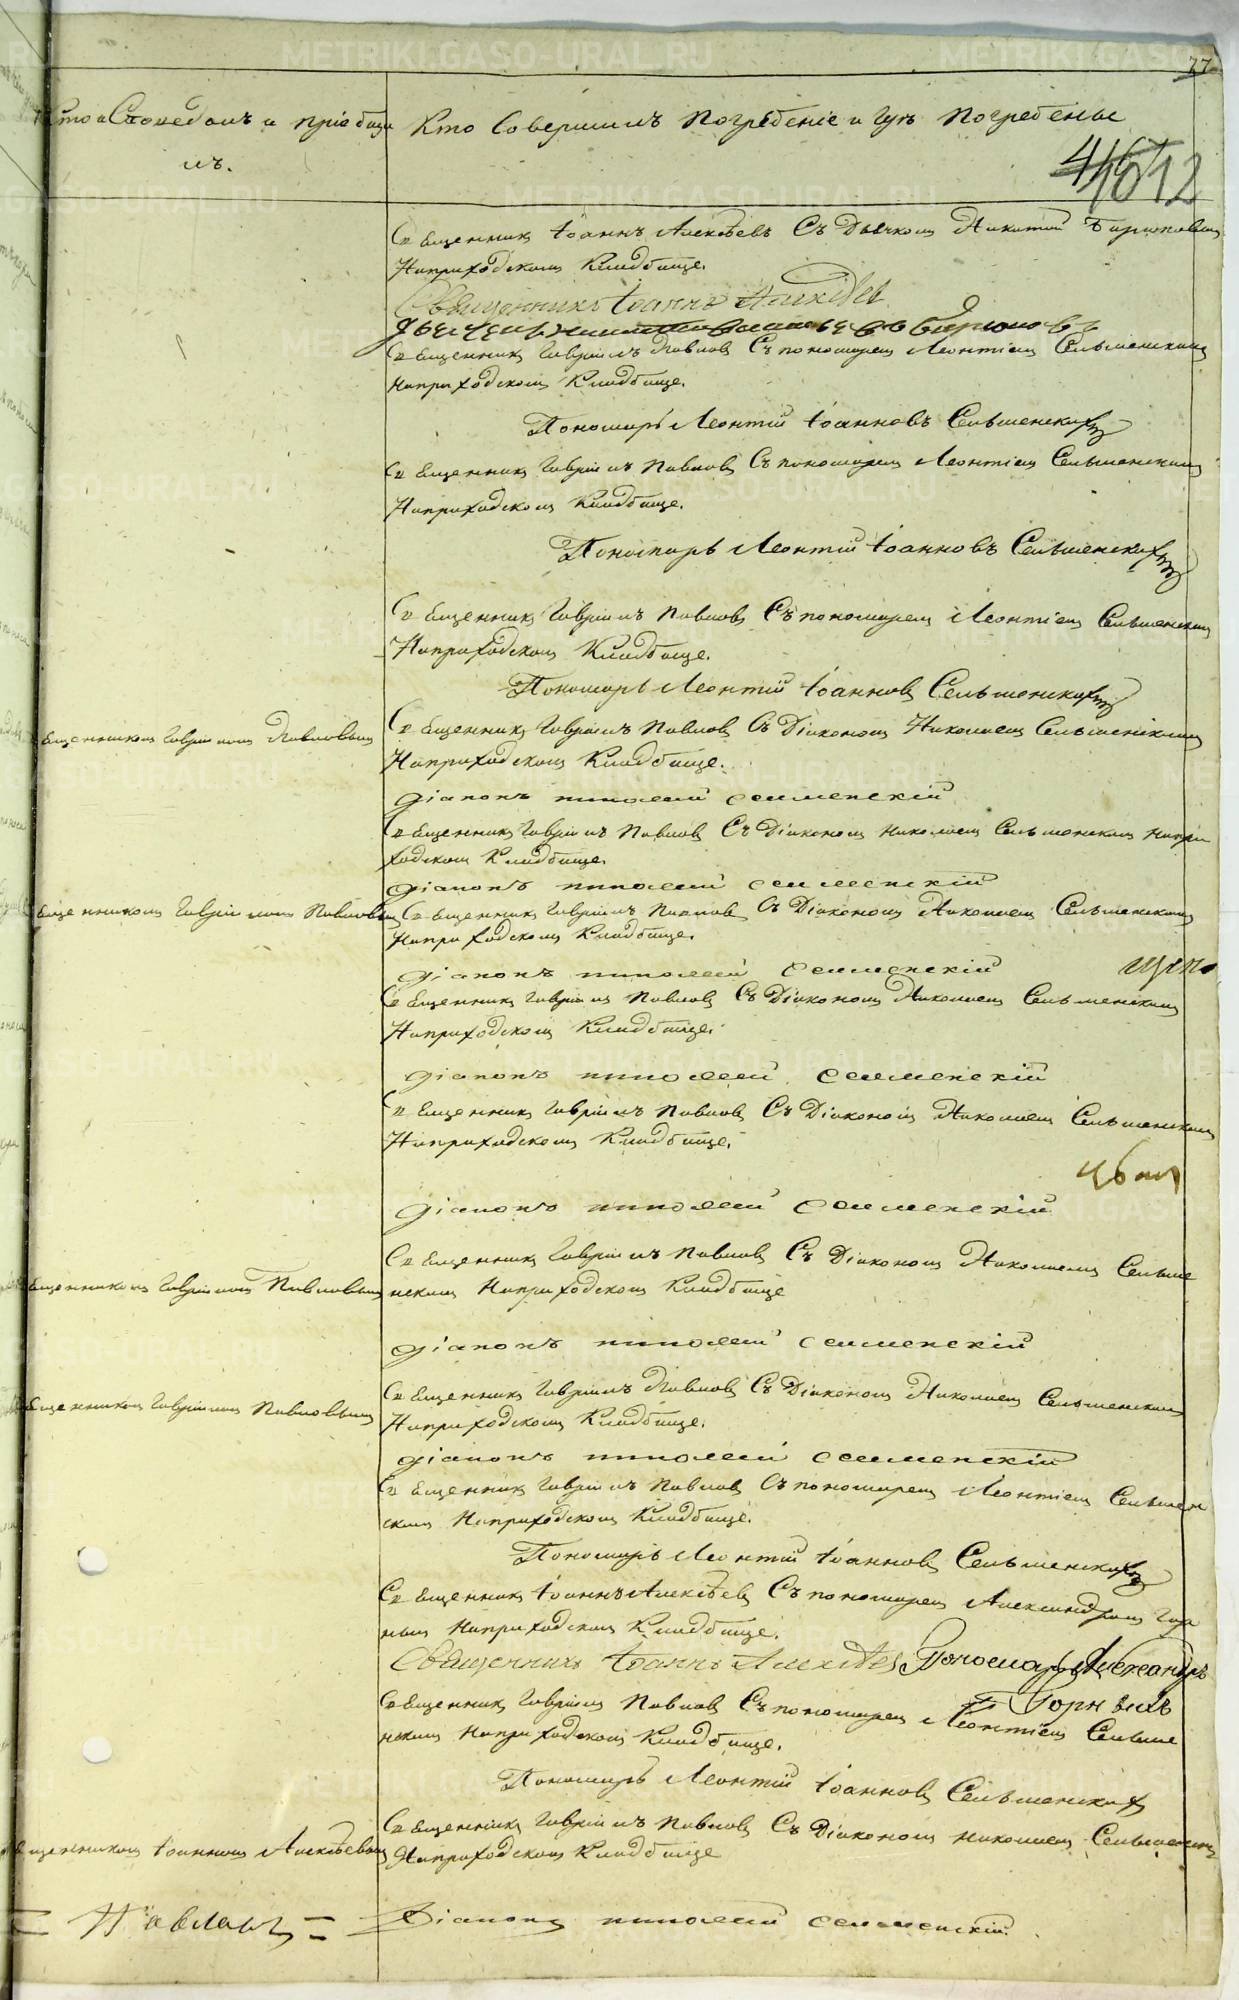 77
Кто Исповедалъ и пріобщи
лъ.
Кто Совершилъ Погребеніе и гдѣ Погребены
1012
Священникъ Іоаннъ Алексѣевъ Съ Дьячкомъ Никитой Бирюковымъ
На приходскомъ Кладбище.
Священникъ Іоаннъ Алексѣев
Священникъ Гавріилъ Павловъ Съ пономаремъ Леонтіемъ Сельменскимъ
на приходскомъ Кладбище.
Пономарь Леонтій Іоанновъ Сельменскій
Священникъ Гавріилъ Павловъ Съ пономаремъ Леонтіемъ Сельменскимъ
На приходскомъ Кладбище.
Пономарь Леонтій Іоанновъ Сельменскій
Священникъ Гавріилъ Павловъ Съ пономаремъ Леонтіемъ Сельменскимъ
На приходскомъ Кладбище.
Пономарь Леонтій Іоанновъ Сельменскій
Священникомъ Гавріиломъ Павловымъ
Священникъ Гавріилъ Павловъ Съ Діакономъ Николаемъ Сельменскимъ
На приходскомъ Кладбище.
Діаконъ николай селменскій
Священникъ Гавріилъ Павловъ Съ Діакономъ Николаемъ Сельменскимъ на при
ходскомъ Кладбище.
Діаконъ николай селменскій
Священникомъ Гавріиломъ Павловымъ
Священникъ Гавріилъ Павловъ Съ Діакономъ Николаемъ Сельменскимъ
На приходскомъ Кладбище.
Діаконъ николай селменскій
Священникъ Гавріилъ Павловъ Съ Діакономъ Николаемъ Сельменскимъ
На приходскомъ Кладбище.
Діаконъ николай селменскій
Священникъ Гавріилъ Павловъ Съ Діакономъ Николаемъ Сельменскимъ
На приходскомъ Кладбище.
Діаконъ николай селменскій
Священникомъ Гавріиломъ Павловымъ
Священникъ Гавріилъ Павловъ Съ Діакономъ Николаемъ Сельме
нскимъ На приходскомъ Кладбище
Діаконъ николай селменскій
Священникомъ Гавріиломъ Павловымъ
Священникъ Гавріилъ Павловъ Съ Діакономъ Николаемъ Сельменскимъ
На приходскомъ Кладбище.
Діаконъ николай селменскій
Священникъ Гавріилъ Павловъ Съ пономаремъ Леонтіемъ Сельмен
скимъ На приходскомъ Кладбище.
Пономарь Леонтій Іоанновъ Сельменскій
Священникъ Іоаннъ Алексѣевъ Съ пономаремъ Александромъ Гор
ныхъ На приходскомъ Кладбище.
Священникъ Іоаннъ Алексѣев Пономарь Александръ
Горныхъ
Священникъ Гавріилъ Павловъ Съ пономаремъ Леонтіемъ Сельме
нскимъ На приходскомъ Кладбище.
Пономарь Леонтій Іоанновъ Сельменскій
Священникомъ Іоанномъ Алексѣевымъ
Священникъ Гавріилъ Павловъ Съ Діакономъ николаемъ Сельменскимъ
На приходскомъ Кладбище
Павламъ
Діаконъ николай селменскій.
METRIKI.GASO-URAL.RU